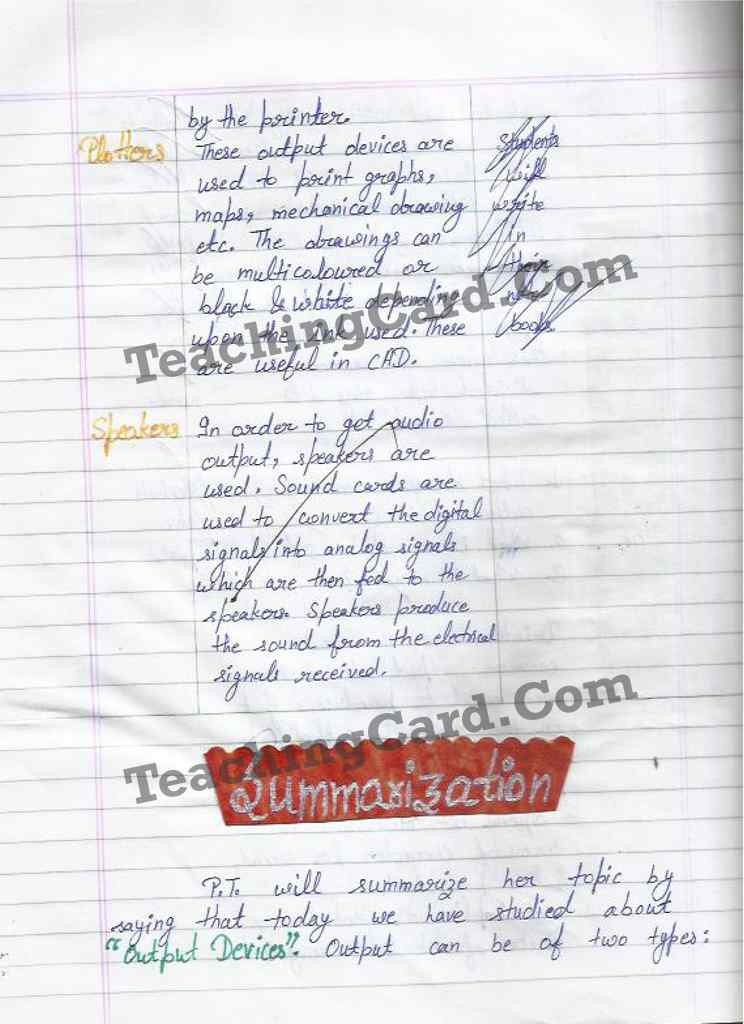 by the printer.
Plotters These output devices are Students
used to print graphs, will
maps, mechanical drawing write
etc. The drawings can in
be multicoloured or their
black & white depending
upon the ink used. These books.
are useful in CAD.
TeachingCard.Com
Speakers In order to get audio
output, speakers are
used. Sound cards are
used to convert the digital
signals into analog signals
which are then fed to the
speakers. Speakers produce
the sound from the electrical
signals received.
TeachingCard.Com
Summarization
P.T. will summarize her topic by
saying that today we have studied about
"Output Devices". Output can be of two types: